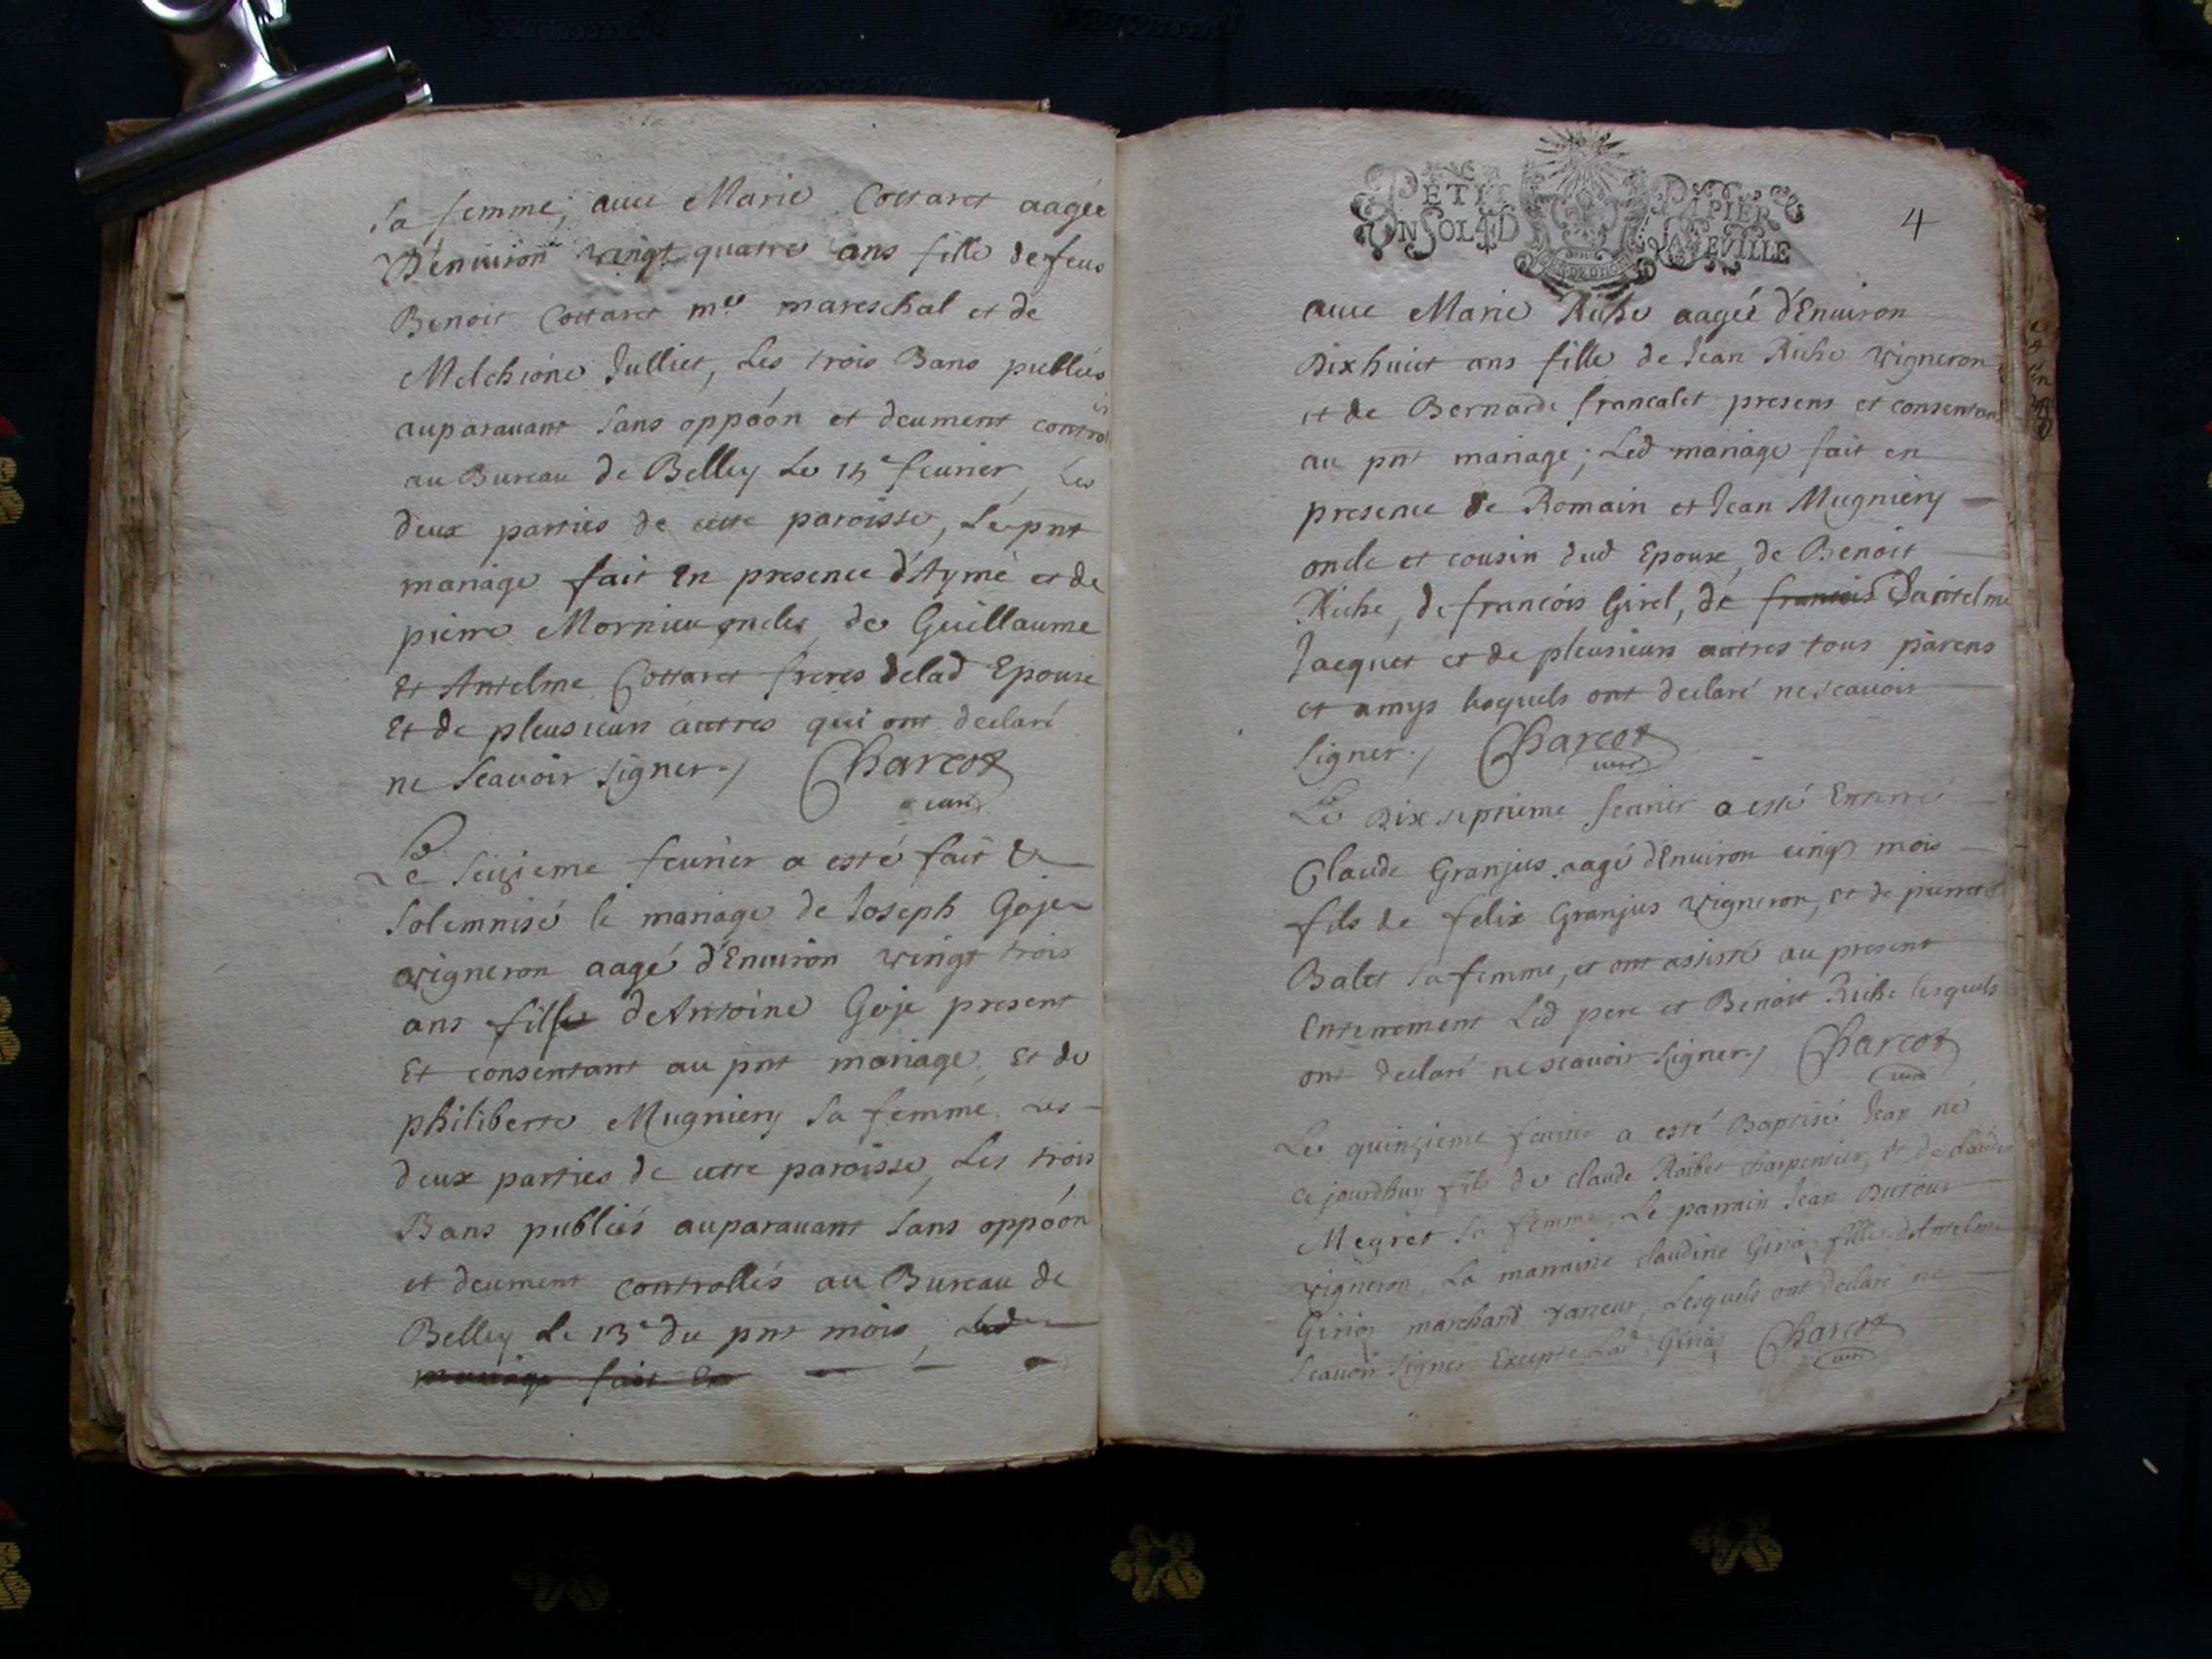 sa femme, auec Marie Cottaret aagée
D'enuiron vingt quatre ans fille de feus
Benoit Cottaret me mareschal et de
Melchione Julliet, Les trois Bans publiés
auparauant sans oppoôn et deument contrôés
au Bureau de Belley Le 15e feurier, Les
deux parties de cette paroisse, Le pnt
mariage fait En presence d'Aymé et de
pierre Mornieu oncles, de Guillaume
Et Antelme Cottaret freres delad Epouse
Et de pleusieurs autres qui ont declaré
ne scauoir signer./ Charcot
curé
Le seizieme feurier a esté fait &
solemnisé le mariage de Joseph Goje
vigneron aagé d'Enuiron vingt trois
ans fils de Antoine Goje present
Et consentant au pnt mariage, Et de
philiberte Mugniery sa femme, Les
deux parties de cette paroisse, Les trois
Bans publiés auparauant sans oppoôn
et deument controllés au Bureau de
Belley Le 13e du pnt mois, Led
mariage fait En
PETIT PAPIER
UN SOL 4D LA FEVILLE
4
auec Marie Riche aageé d'Enuiron
Dixhuict ans fille de Jean Riche vigneron
et de Bernarde francalet presens et consentans
au pnt mariage; Led mariage fait en
presence de Romain et Jean Mugniery
oncle et cousin dud Epoux, de Benoit
Riche, de francois Girel, de francois Dantelme
Jacquet et de pleusieurs autres tous parens
et amys lesquels ont declaré ne scauoir
signer./ Charcot
curé
Le Dix septieme feurier a esté Enterré
Claude Granjus aagé d'Enuiron cinq mois
fils de felix Granjus vigneron, et de pierrette
Balet sa femme, et ont assisté au present
Enterrement Led pere et Benoit Riche lesquels
ont declaré ne scauoir signer./ Charcot
curé
Le quinzieme feurier a esté Baptisé Jean né
ce jourdhuy fils de Claude Roibet charpentier, & de claudine
Megret sa femme, Le parrain Jean Dutour
vigneron, La marraine claudine Girin fille d'Antelme
Girin marchand tanneur, Lesquels ont declaré ne
scauoir signer Excepté Lad Girin Charcot
curé